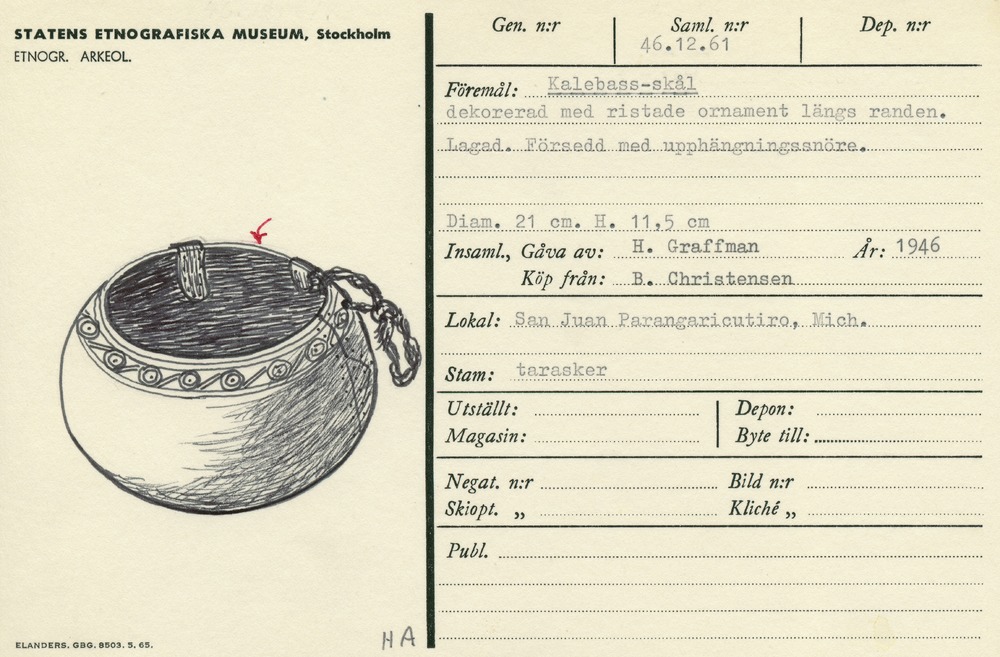 STATENS ETNOGRAFISKA MUSEUM, Stockholm
ETNOGR. ARKEOL.
Gen. n:r
Saml. n:r
Dep. n:r
46.12.61
Föremål: Kalebass-skål
dekorerad med ristade ornament längs randen.
Lagad. Försedd med upphängningssnöre.
Diam. 21 cm. H. 11,5 cm
Insaml., Gåva av: H. Graffman År: 1946
Köp från: B. Christensen
Lokal: San Juan Parangaricutiro, Mich.
Stam: tarasker
Utställt: Depon:
Magasin: Byte till:
Negat. n:r Bild n:r
Skiopt. „ Kliché „
Publ.
ELANDERS. GBG. 8503. 5. 65.
HA